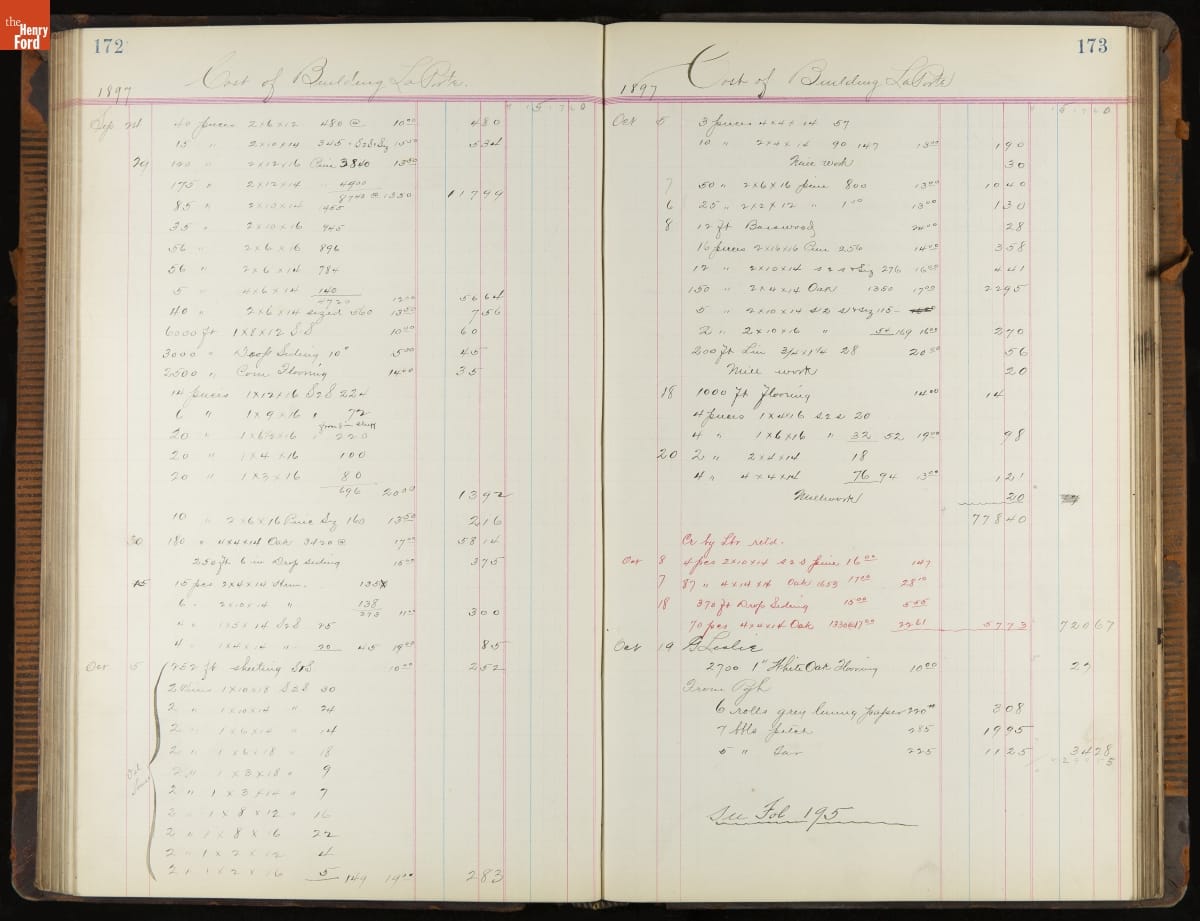 the
Henry
Ford
172
Cost of Building La Porte.
1897
Sep 21 40 pieces 2x6x12 480 @ 10 00 480
15 " 2x10x14 345 S2S+Siz 15 50 534
29 120 " 2x12x16 Pine 3840 13 50
175 " 2x12x14 " 4900
8740 @ 1350 11799
85 " 2x10x14
35 " 2x10x16 945
56 " 2x6x16 896
56 " 2x6x14 784
5 " 4x6x14 140
4720 12 00 5664
40 " 2x6x14 sized 560 13 50 756
6000 ft 1x8x12 S1S 10 00 60
3000 " Drop Siding 10" 15 00 45
2500 " Com Flooring 14 00 35
14 pieces 1x12x16 S2S 224
6 " 1x9x16 " 72
20 " 1x6½x16 " 220
20 " 1x4x16 100
20 " 1x3x16 80
696 20 00 1392
10 " 2x6x16 Pine Siz 160 13 50 216
30 180 " 4x4x14 Oak 3420 @ 17 00 5814
250 ft 6 in Drop siding 15 00 375
15 15 pcs 2x4x14 Hem. 135
6 " 2x10x14 " 138
273 11 00 300
4 " 1x5x14 S2S 25
4 " 1x4x14 " 20 45 19 00 85
Oct 5 252 ft sheeting S1S 10 00 252
2 Pieces 1x10x18 S2S 30
2 " 1x10x14 " 24
2 " 1x6x14 " 14
2 " 1x6x18 " 18
2 " 1x3x18 " 9
2 " 1x3x14 " 7
2 " 1x8x12 " 16
2 " 1x8x16 22
2 " 1x2x12 4
2 " 1x2x16 5 149 19 00 283
173
Cost of Building La Porte
1897
Oct 5 3 pieces 4x4x14 57
10 " 2x4x14 90 147 13 00 190
Mill work 30
7 50 " 2x6x16 pine 800 13 00 1040
6 25 " 2x2x12 " 1 00 13 00 130
8 12 ft Basswood 24 00 28
16 pieces 2x16x16 Pine 256 14 00 358
12 " 2x10x14 S2S+Siz 276 16 00 441
150 " 2x4x14 Oak 1350 17 00 2295
5 " 2x10x14 S1S+Siz 115
2 " 2x10x16 " 54 169 16 00 270
200 ft Lin 3/4x1¼ 28 20 00 56
Mill work 20
18 1000 ft Flooring 14 00 14
4 pieces 1x4x16 S2S 20
4 " 1x6x16 " 32 52 19 00 98
20 2 " 2x4x14 18
4 " 4x4x14 76 94 13 00 121
Millwork 20
77840
Cr by Lbr retd.
Oct 8 4 pcs 2x10x14 S2S pine 16 00 147
7 87 " 4x14x14 Oak 1653 17 00 28 10
18 370 ft Drop Siding 15 00 555
70 pcs 4x4x14 Oak 1330 @ 17 00 2261 5773 72067
Oct 19 G Leslie
2700 1" White Oak Flooring 10 00 27
From Pgh
6 rolls grey lining paper 220" 308
7 bbls pitch 285 1995
5 " Tar 225 1125 3428
See Fol 195